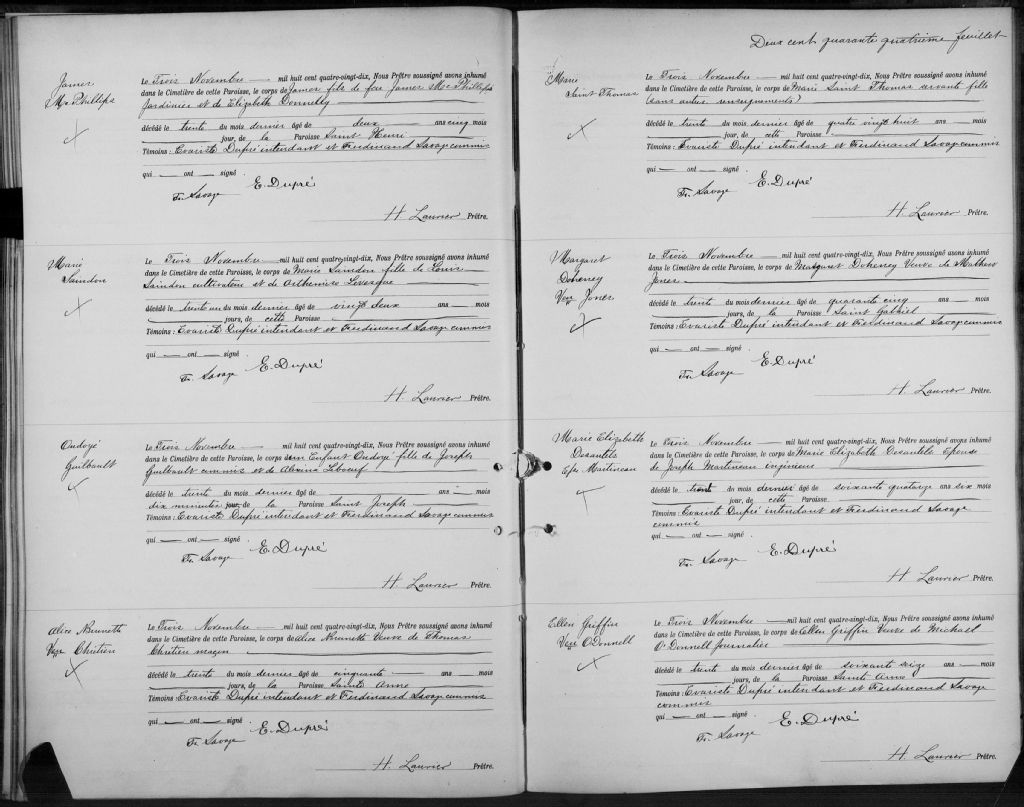 James
McPhillips
Le Trois Novembre — mil huit cent quatre-vingt-dix, Nous Prêtre soussigné avons inhumé
dans le Cimetière de cette Paroisse, le corps de James fils de feu James McPhillips
Jardinier et de Elizabeth Donnelly
décédé le trente du mois dernier âgé de deux ans cinq mois
jour, de la Paroisse Saint Henri
Témoins : Evariste Dupré intendant et Ferdinand Savage commis
qui — ont — signé.
Fr. Savage E. Dupré
H. Laurier Prêtre.
Marie
Saindon
Le Trois Novembre mil huit cent quatre-vingt-dix, Nous Prêtre soussigné avons inhumé
dans le Cimetière de cette Paroisse, le corps de Marie Saindon fille de Louis
Saindon cultivateur et de Arthemise Levesque
décédé le trente un du mois dernier âgé de vingt deux ans — mois
— jours, de cette Paroisse
Témoins : Evariste Dupré intendant et Ferdinand Savage commis
qui — ont — signé
Fr. Savage E. Dupré
H. Laurier Prêtre.
Ondoyé
Guilbault
Le Trois Novembre — mil huit cent quatre-vingt-dix, Nous Prêtre soussigné avons inhumé
dans le Cimetière de cette Paroisse, le corps de un Enfant Ondoyé fille de Joseph
Guilbault commis et de Alexina Leboeuf
décédé le trente du mois dernier âgé de — ans — mois
dix minutes jour, de la Paroisse Saint Joseph
Témoins : Evariste Dupré intendant et Ferdinand Savage commis
qui — ont — signé.
Fr. Savage E. Dupré
H. Laurier Prêtre.
Alice Brunette
Veuve Chrétien
Le Trois Novembre — mil huit cent quatre-vingt-dix, Nous Prêtre soussigné avons inhumé
dans le Cimetière de cette Paroisse, le corps de Alice Brunette Veuve de Thomas
Chrétien maçon
décédé le trente du mois dernier âgé de cinquante ans — mois
— jours, de la Paroisse Sainte Anne
Témoins : Evariste Dupré intendant et Ferdinand Savage commis
qui — ont — signé.
Fr. Savage E. Dupré
H. Laurier Prêtre.
Deux cent quarante quatrième feuillet
Marie
Saint Thomas
Le Trois Novembre — mil huit cent quatre-vingt-dix, Nous Prêtre soussigné avons inhumé
dans le Cimetière de cette Paroisse, le corps de Marie Saint Thomas vivante fille
(sans autres renseignements)
décédé le trente du mois dernier âgé de quatre vingt huit ans — mois
jour, de cette Paroisse
Témoins : Evariste Dupré intendant et Ferdinand Savage commis
qui — ont — signé
Fr. Savage E. Dupré
H. Laurier Prêtre.
Margaret
Doheney
Vve Jones
Le Trois Novembre — mil huit cent quatre-vingt-dix, Nous Prêtre soussigné avons inhumé
dans le Cimetière de cette Paroisse, le corps de Margaret Doheney Veuve de Mathew
Jones
décédé le trente du mois dernier âgé de quarante cinq ans — mois
— jours, de la Paroisse Saint Gabriel
Témoins : Evariste Dupré intendant et Ferdinand Savage commis
qui — ont — signé
Fr. Savage E. Dupré
H. Laurier Prêtre.
Marie Elizabeth
Desautels
Epse Martineau
Le Trois Novembre — mil huit cent quatre-vingt-dix, Nous Prêtre soussigné avons inhumé
dans le Cimetière de cette Paroisse, le corps de Marie Elizabeth Desautels Epouse
de Joseph Martineau ingénieur
décédé le trente du mois dernier âgé de soixante quatorze ans six mois
jour, de cette Paroisse
Témoins : Evariste Dupré intendant et Ferdinand Savage
commis
qui — ont — signé.
Fr. Savage E. Dupré
H. Laurier Prêtre.
Ellen Griffin
Vve O'Donnell
Le Trois Novembre — mil huit cent quatre-vingt-dix, Nous Prêtre soussigné avons inhumé
dans le Cimetière de cette Paroisse, le corps de Ellen Griffin Veuve de Michael
O'Donnell Journalier
décédé le trente du mois dernier âgé de soixante seize ans — mois
— jours, de la Paroisse Sainte Anne
Témoins : Evariste Dupré intendant et Ferdinand Savage
commis
qui — ont — signé.
Fr. Savage E. Dupré
H. Laurier Prêtre.